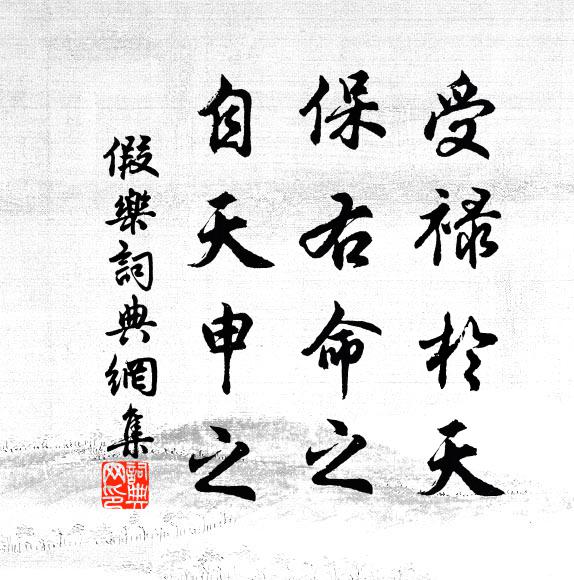 受祿於天
保右命之
自天申之
假樂詞典網集
詞典网印